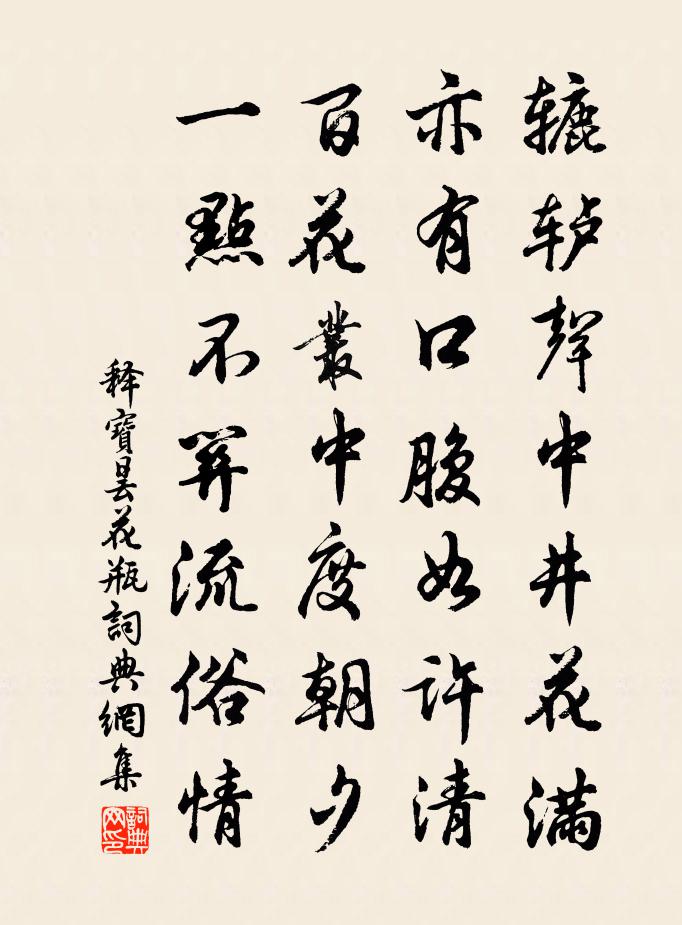 辘轳聲中井花满
亦有口腹如許清
百花叢中度朝夕
一點不關流俗情
释寶曇花瓶詞典網集
詞典网印